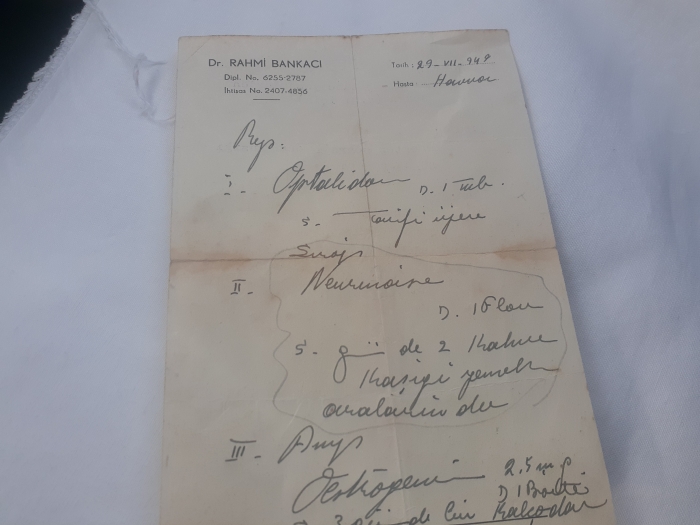 Dr. RAHMİ BANKACI
Dipl. No. 6255-2787
İhtisas No. 2407-4856
Tarih : 29-VII-949
Hasta
Rp:
I. Optalidon
D. 1 tub.
S- Tarifi üzere
Siroj
II- Neurinoise
D. 1 Flon
S- günde 2 Kahve
Kaşıgı yemek
aralarında
III- Amp
2,5 mg
D 1
3 günde bir Kalçadan